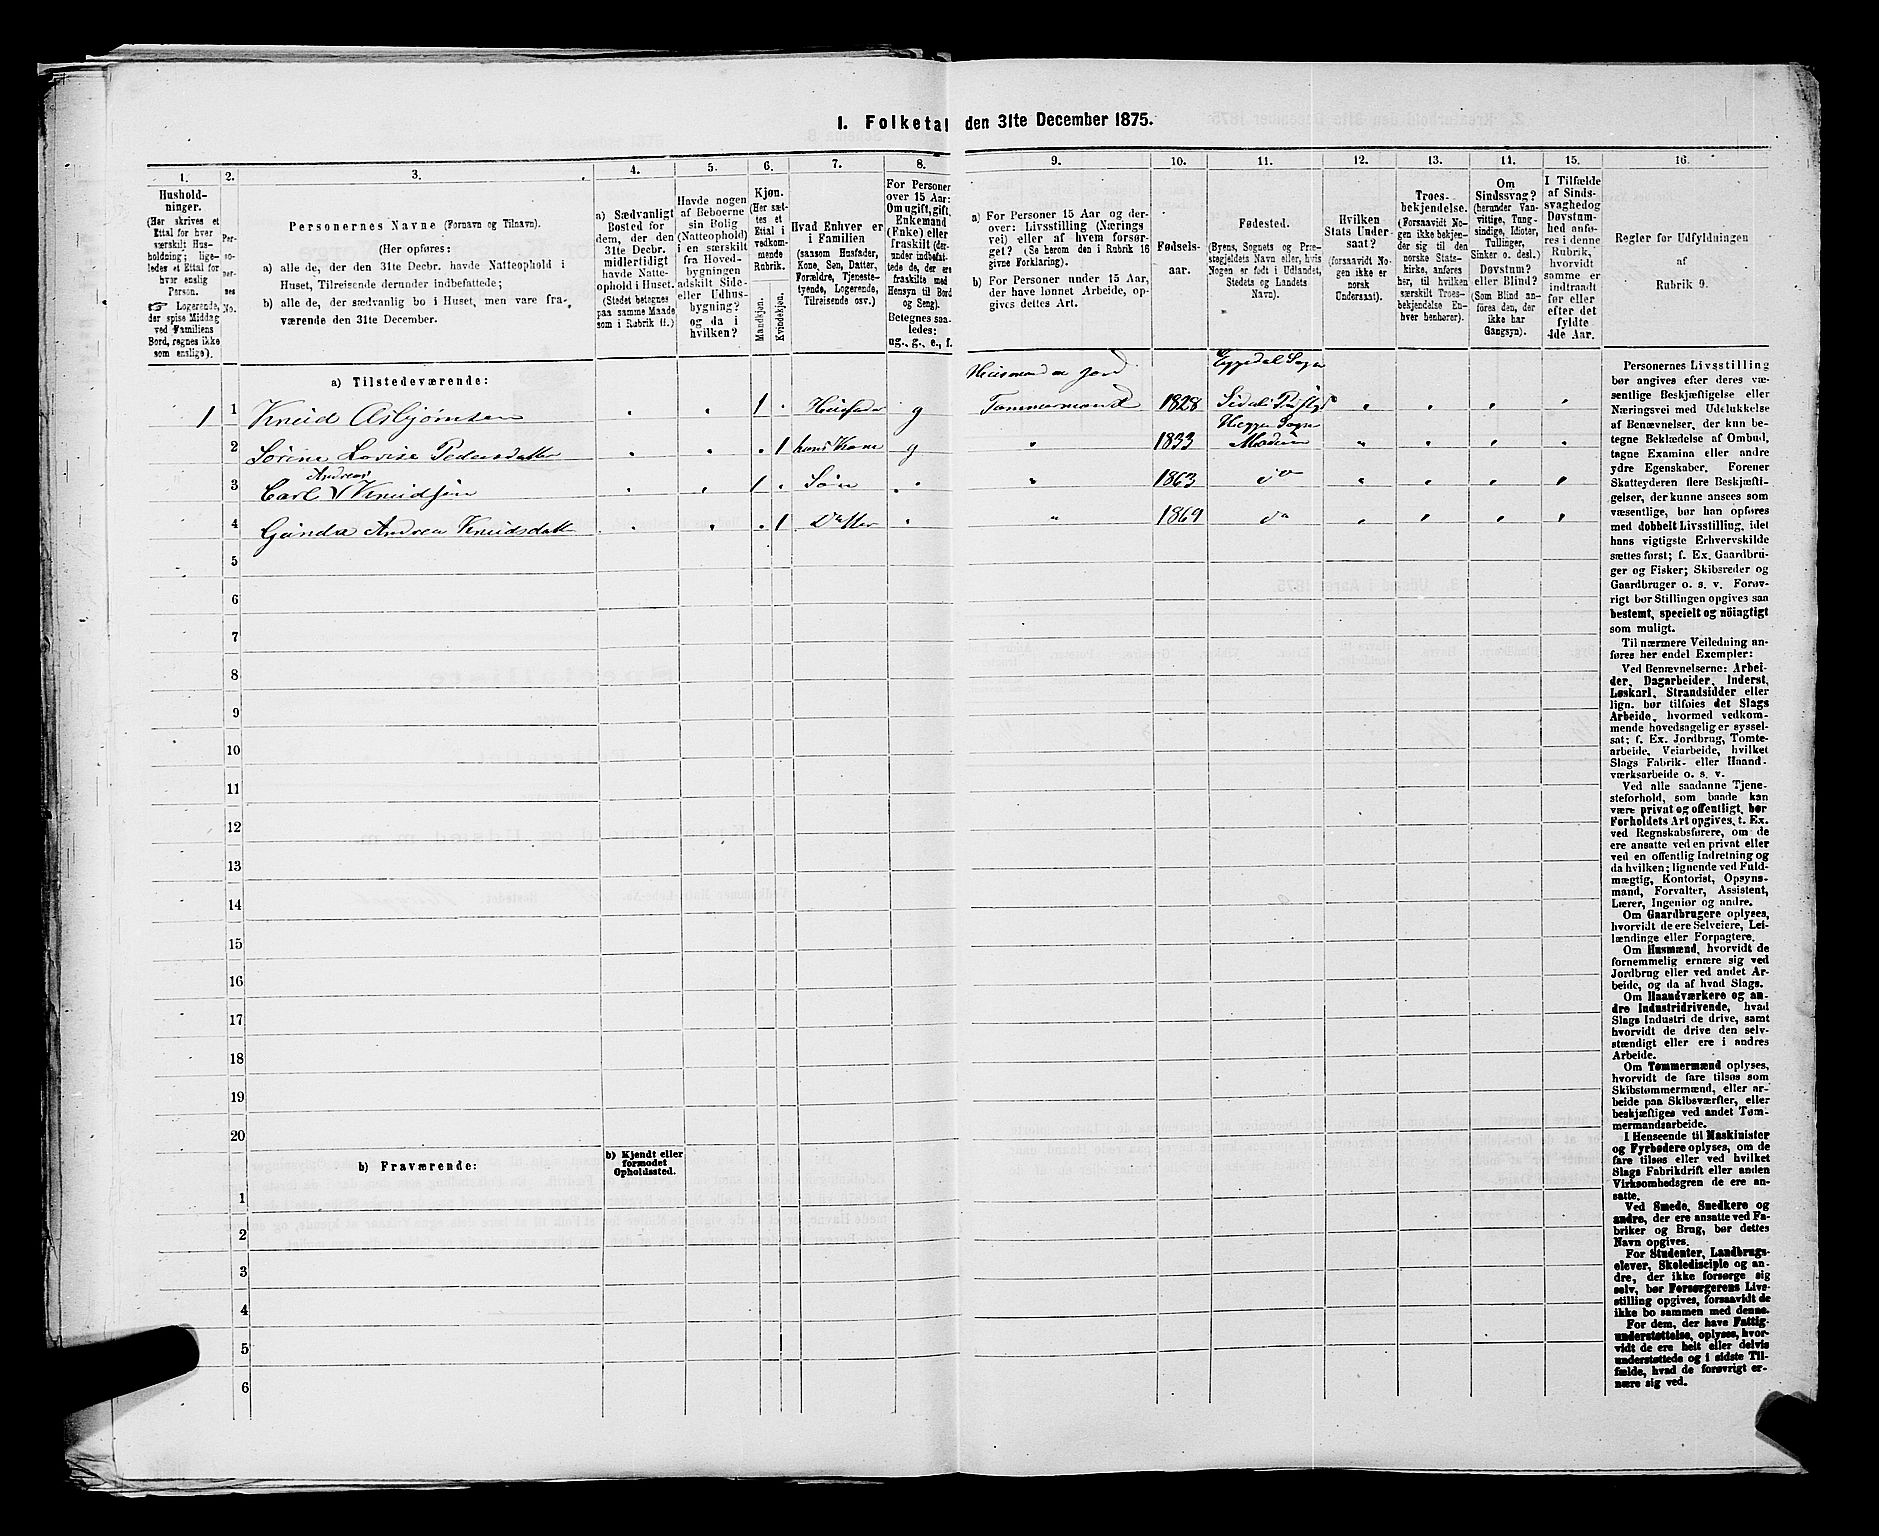 1. Folketal den 31te December 1875.
1. 2. 3. 4. 5. 6. 7. 8. 9. 10. 11. 12. 13. 14. 15. 16.
Hushold-
ninger.
(Her skrives et
Ettal for hver
særskilt Hus-
holdning; lige-
ledes et Ettal for
hver enslig
Person.
☞ Logerende,
der spise Middag
ved Familiens
Bord, regnes ikke
som enslige).
Per-
so-
ner-
nes
No.
Personernes Navne (Fornavn og Tilnavn).
(Her opføres:
a) alle de, der den 31te Decbr. havde Natteophold i
Huset, Tilreisende derunder indbefattede;
b) alle de, der sædvanlig bo i Huset, men vare fra-
værende den 31te December.
a) Sædvanligt
Bosted for
dem, der den
31te Decbr.
midlertidigt
havde Natte-
ophold i Huset.
(Stedet betegnes
paa samme Maade
som i Rubrik 11.)
Havde nogen
af Beboerne
sin Bolig
(Natteophold)
i en særskilt
fra Hoved-
bygningen
adskilt Side-
eller Udhus-
bygning?
og da i
hvilken?
Kjøn.
(Her sæt-
tes et
Ettal i
vedkom-
mende
Rubrik.
Mandkjøn.
Kvindekjøn.
Hvad Enhver er
i Familien
(saasom Husfader,
Kone, Søn, Datter,
Forældre, Tjeneste-
tyende, Logerende,
Tilreisende osv.)
For Personer
over 15 Aar:
Om ugift, gift,
Enkemand
(Enke) eller
fraskilt (der-
under indbefat-
tede de, der ere
fraskilte med
Hensyn til Bord
og Seng).
Betegnes saa-
ledes:
ug., g., e., f.
a) For Personer 15 Aar og der-
over: Livsstilling (Nærings-
vei) eller af hvem forsør-
get? (Se herom den i Rubrik 16
givne Forklaring).
b) For Personer under 15 Aar,
der have lønnet Arbeide, op-
gives dettes Art.
Fødsels-
aar.
Fødested.
(Byens, Sognets og Præ-
stegjeldets Navn eller, hvis
Nogen er født i Udlandet,
Stedets og Landets
Navn).
Hvilken
Stats Under-
saat?
(forsaavidt No-
gen ikke er
norsk
Undersaat).
Troes-
bekjendelse.
(Forsaavidt No-
gen ikke bekjen-
der sig til den
norske Stats-
kirke, anføres
her, til hvilken
særskilt Troes-
bekjendelse En-
hver henhører).
Om
Sindssvag?
(herunder Van-
vittige, Tung-
sindige, Idioter,
Tullinger,
Sinker o. desl.)
Døvstum?
eller Blind?
(Som Blind an-
føres den, der
ikke har
Gangsyn).
I Tilfælde
af Sinds-
svaghed og
Døvstum-
hed anfø-
res i denne
Rubrik,
hvorvidt
samme er
indtraadt
før eller
efter det
fyldte
4de Aar.
Regler for Udfyldningen
af
Rubrik 9.
a) Tilstedeværende:
Husmand m jord Eggedal Sogn
1 1 Knud Asbjørnsen 1 Husfader g Tømmermand 1828 Sidals Præstgj
Heggen Sogn
2 Sørine Lovise Pedersdatt 1 hans Kone g " 1833 Modum
Andreas
3 Carl V Knudsen 1 Søn " 1863 do
4 Gunda Andrea Knudsdatt 1 Datter " 1869 do
5
6
7
8
9
10
11
12
13
14
15
16
17
18
19
20
b) Fraværende:
b) Kjendt eller
formodet
Opholdssted.
1
2
3
4
5
6
Personernes Livsstilling
bør angives efter deres væ-
sentlige Beskjæftigelse eller
Næringsvei med Udelukkelse
af Benævnelser, der kun be-
tegne Beklædelse af Ombud,
tagne Examina eller andre
ydre Egenskaber. Forener
Skatteyderen flere Beskjæfti-
gelser, der kunne ansees som
væsentlige, bør han opføres
med dobbelt Livsstilling, idet
hans vigtigste Erhvervskilde
sættes først; f. Ex. Gaardbru-
ger og Fisker; Skibsreder og
Gaardbruger o. s. v. Forøv-
rigt bør Stillingen opgives saa
bestemt, specielt og nöiagtigt
som muligt.
Til nærmere Veiledning an-
føres her endel Exempler:
Ved Benævnelserne: Arbei-
der, Dagarbeider, Inderst,
Løskarl, Strandsidder eller
lign. bør tilføies det Slags
Arbeide, hvormed vedkom-
mende hovedsagelig er syssel-
sat; f. Ex. Jordbrug, Tomte-
arbeide, Veiarbeide, hvilket
Slags Fabrik- eller Haand-
værksarbeide o. s. v.
Ved alle saadanne Tjene-
steforhold, som baade kan
være privat og offentligt, bør
Forholdets Art opgives, t. Ex.
ved Regnskabsførere, om de
ere ansatte ved en privat eller
ved en offentlig Indretning og
da hvilken; lignende ved Fuld-
mægtig, Kontorist, Opsyns-
mand, Forvalter, Assistent,
Lærer, Ingeniør og andre.
Om Gaardbrugere oplyses,
hvorvidt de ere Selveiere, Lei-
lændinge eller Forpagtere.
Om Husmænd, hvorvidt de
fornemmelig ernære sig ved
Jordbrug eller ved andet Ar-
beide, og da af hvad Slags.
Om Haandværkere og an-
dre Industridrivende, hvad
Slags Industri de drive, samt
hvorvidt de drive den selv-
stændigt eller ere i andres
Arbeide.
Om Tømmermænd oplyses,
hvorvidt de fare tilsøs som
Skibstømmermænd, eller ar-
beide paa Skibsværfter, eller
beskjæftiges ved andet Tøm-
mermandsarbeide.
I Henseende til Maskinister
og Fyrbødere oplyses, om de
fare tilsøs eller ved hvilket
Slags Fabrikdrift eller anden
Virksomhedsgren de ere an-
satte.
Ved Smede, Snedkere og
andre, der ere ansatte ved Fa-
briker og Brug, bør dettes
Navn opgives.
For Studenter, Landbrugs-
elever, Skoledisciple og an-
dre, der ikke forsørge sig
selv, bør Forsørgerens Livs-
stilling opgives, forsaavidt de
ikke bo sammen med denne.
For dem, der have Fattig-
understøttelse, oplyses, hvor-
vidt de ere helt eller delvis
understøttede og i sidste Til-
fælde, hvad de forøvrigt er-
nære sig ved.